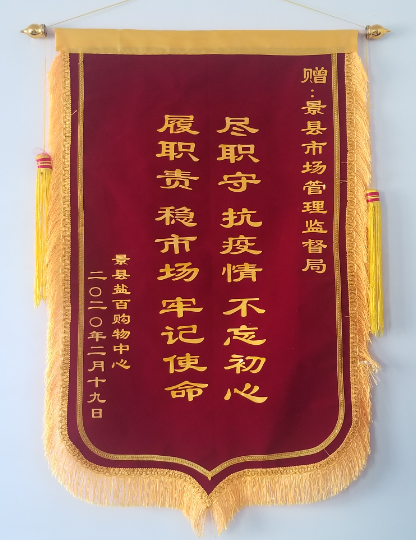 赠:景县市场管理监督局
尽职守 抗疫情 不忘初心
履职责 稳市场 牢记使命
景县盐百购物中心
二〇二〇年二月十九日